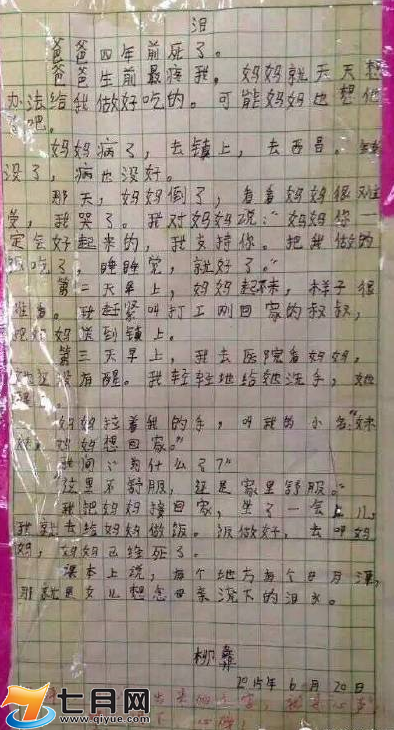 泪
爸爸四年前死了。
爸爸生前最疼我,妈妈就天天想
办法给我做好吃的。可能妈妈也想他
了吧。
妈妈病了,去镇上,去西昌。钱
没了,病也没好。
那天,妈妈倒了,看着妈妈很难
受,我哭了。我对妈妈说:“妈妈你一
定会好起来的,我支持你。把我做的
饭吃了,睡睡觉,就好了。”
第二天早上,妈妈起不来,样子很
难看。我赶紧叫打工刚回家的叔叔,
把妈妈送到镇上。
第三天早上,我去医院看妈妈,
她还没有醒。我轻轻地给她洗手,她
醒
妈妈拉着我的手,叫我的小名:“妹
妹,妈妈想回家。”
我问:“为什么了?”
“这里不舒服,还是家里舒服。”
我把妈妈接回家,坐了一会儿,
我就去给妈妈做饭。饭做好,去叫妈
妈,妈妈已经死了。
课本上说,每个地方每个日月潭,
那就是女儿想念母亲流下的泪水。
柳彝
2015年6月20日
七月网
www.qiyue.com